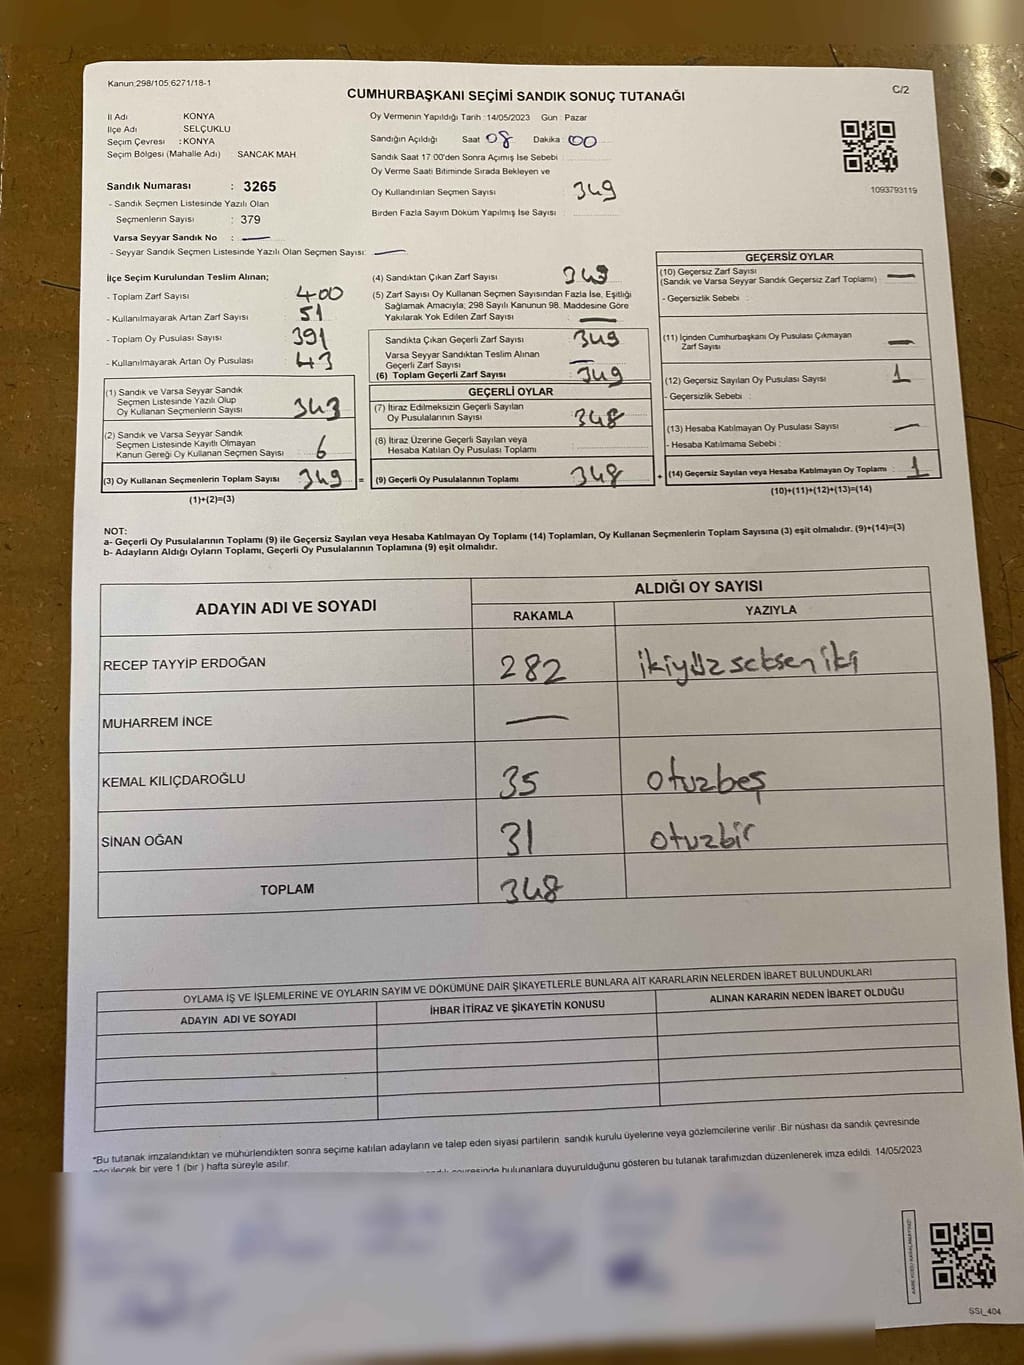 Kanun 298/105,6271/18-1
C/2
CUMHURBAŞKANI SEÇİMİ SANDIK SONUÇ TUTANAĞI
İl Adı KONYA
İlçe Adı SELÇUKLU
Seçim Çevresi : KONYA
Seçim Bölgesi (Mahalle Adı) SANCAK MAH
Sandık Numarası : 3265
- Sandık Seçmen Listesinde Yazılı Olan
Seçmenlerin Sayısı : 379
Varsa Seyyar Sandık No : —
- Seyyar Sandık Seçmen Listesinde Yazılı Olan Seçmen Sayısı: —
Oy Vermenin Yapıldığı Tarih : 14/05/2023 Gün : Pazar
Sandığın Açıldığı Saat 08 Dakika 00
Sandık Saat 17 00'den Sonra Açılmış İse Sebebi :
Oy Verme Saati Bitiminde Sırada Bekleyen ve
Oy Kullandırılan Seçmen Sayısı 349
Birden Fazla Sayım Döküm Yapılmış İse Sayısı :
1093793119
İlçe Seçim Kurulundan Teslim Alınan;
- Toplam Zarf Sayısı 400
- Kullanılmayarak Artan Zarf Sayısı : 51
- Toplam Oy Pusulası Sayısı : 391
- Kullanılmayarak Artan Oy Pusulası : 43
(1) Sandık ve Varsa Seyyar Sandık
Seçmen Listesinde Yazılı Olup
Oy Kullanan Seçmenlerin Sayısı : 343
(2) Sandık ve Varsa Seyyar Sandık
Seçmen Listesinde Kayıtlı Olmayan
Kanun Gereği Oy Kullanan Seçmen Sayısı : 6
(3) Oy Kullanan Seçmenlerin Toplam Sayısı : 349 =
(1)+(2)=(3)
(4) Sandıktan Çıkan Zarf Sayısı 349
(5) Zarf Sayısı Oy Kullanan Seçmen Sayısından Fazla İse, Eşitliği
Sağlamak Amacıyla; 298 Sayılı Kanunun 98. Maddesine Göre
Yakılarak Yok Edilen Zarf Sayısı : —
Sandıkta Çıkan Geçerli Zarf Sayısı : 349
Varsa Seyyar Sandıktan Teslim Alınan
Geçerli Zarf Sayısı : —
(6) Toplam Geçerli Zarf Sayısı : 349
GEÇERLİ OYLAR
(7) İtiraz Edilmeksizin Geçerli Sayılan
Oy Pusulalarının Sayısı : 348
(8) İtiraz Üzerine Geçerli Sayılan veya
Hesaba Katılan Oy Pusulası Toplamı :
(9) Geçerli Oy Pusulalarının Toplamı : 348 +
GEÇERSİZ OYLAR
(10) Geçersiz Zarf Sayısı
(Sandık ve Varsa Seyyar Sandık Geçersiz Zarf Toplamı) : —
- Geçersizlik Sebebi :
(11) İçinden Cumhurbaşkanı Oy Pusulası Çıkmayan
Zarf Sayısı : —
(12) Geçersiz Sayılan Oy Pusulası Sayısı : 1
- Geçersizlik Sebebi :
(13) Hesaba Katılmayan Oy Pusulası Sayısı : —
- Hesaba Katılmama Sebebi :
(14) Geçersiz Sayılan veya Hesaba Katılmayan Oy Toplamı : 1
(10)+(11)+(12)+(13)=(14)
NOT:
a- Geçerli Oy Pusulalarının Toplamı (9) ile Geçersiz Sayılan veya Hesaba Katılmayan Oy Toplamı (14) Toplamları, Oy Kullanan Seçmenlerin Toplam Sayısına (3) eşit olmalıdır. (9)+(14)=(3)
b- Adayların Aldığı Oyların Toplamı, Geçerli Oy Pusulalarının Toplamına (9) eşit olmalıdır.
ADAYIN ADI VE SOYADI
ALDIĞI OY SAYISI
RAKAMLA YAZIYLA
RECEP TAYYİP ERDOĞAN 282 ikiyüzseksen iki
MUHARREM İNCE —
KEMAL KILIÇDAROĞLU 35 otuzbeş
SİNAN OĞAN 31 otuzbir
TOPLAM 348
OYLAMA İŞ VE İŞLEMLERİNE VE OYLARIN SAYIM VE DÖKÜMÜNE DAİR ŞİKAYETLERLE BUNLARA AİT KARARLARIN NELERDEN İBARET BULUNDUKLARI
ADAYIN ADI VE SOYADI
İHBAR İTİRAZ VE ŞİKAYETİN KONUSU
ALINAN KARARIN NEDEN İBARET OLDUĞU
*Bu tutanak imzalandıktan ve mühürlendikten sonra seçime katılan adayların ve talep eden siyasi partilerin sandık kurulu üyelerine veya gözlemcilerine verilir .Bir nüshası da sandık çevresinde
görülecek bir yere 1 (bir ) hafta süreyle asılır.
bulunanlara duyurulduğunu gösteren bu tutanak tarafımızdan düzenlenerek imza edildi. 14/05/2023
SSI_404